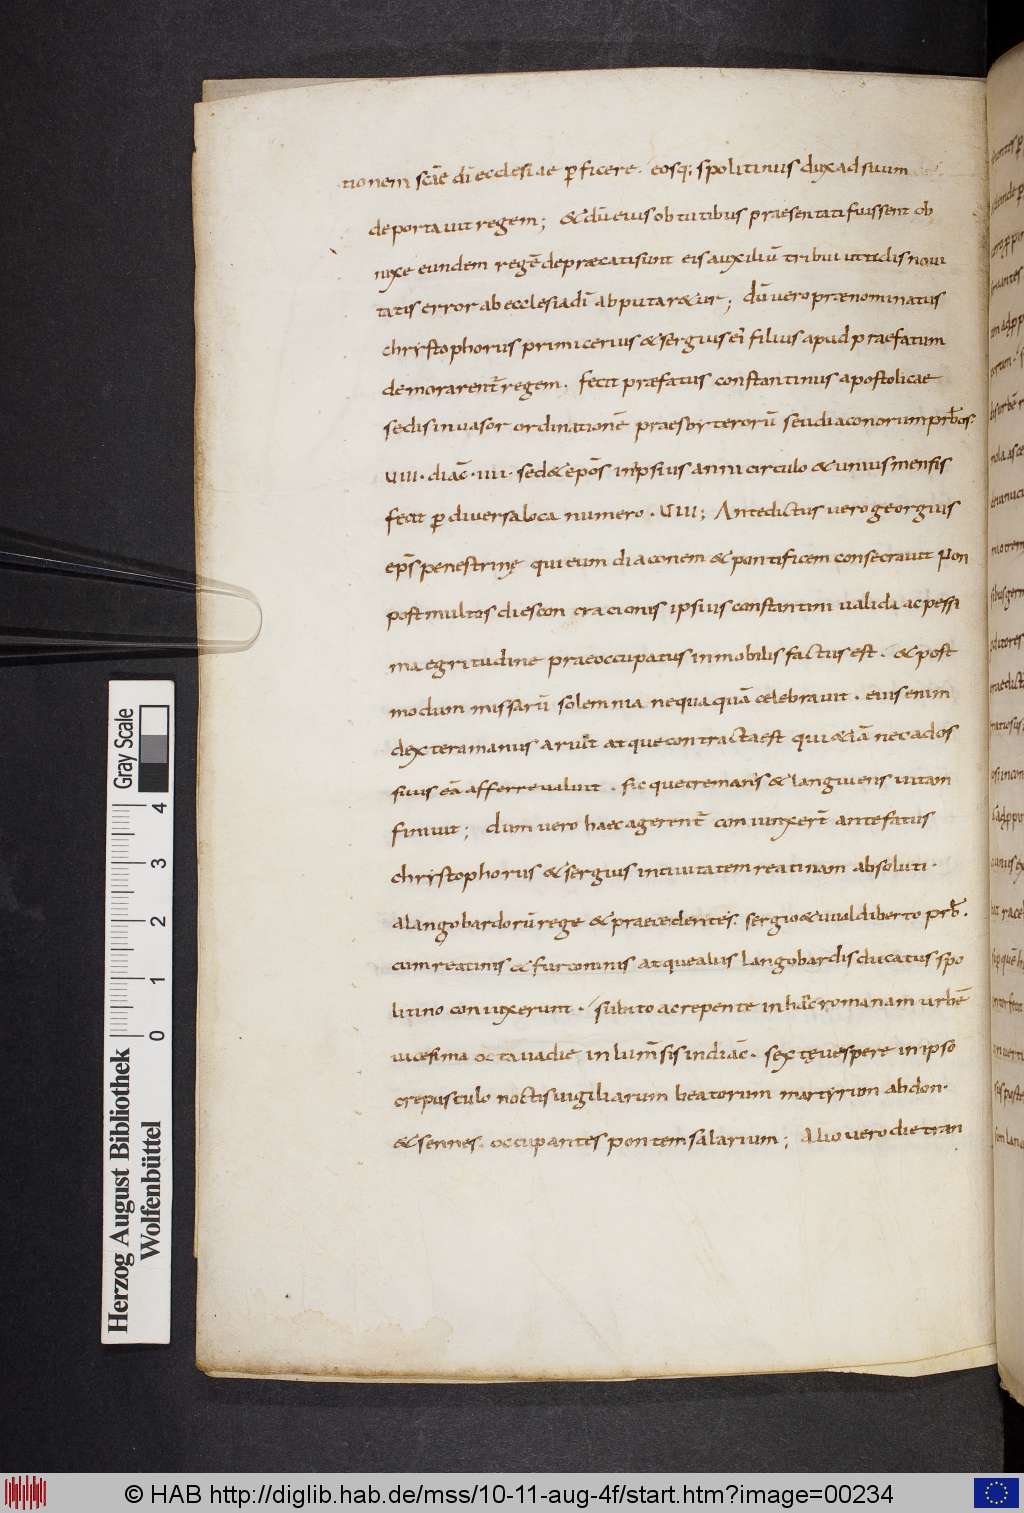 tionem scāe dī ecclesiae ꝑficere . eosq; spolitinus dux ad suum
deportauit regem ; & dū eius obtutibus praesentati fuissent ob
nixe eundem regē depræcati sunt eis auxiliū tribui ut tedis noui
tatis error ab ecclesia dī abputar&ur ; dū uero prænominatus
chrystophorus primicerius & sergius ei filius apud praefatum
demorarent̄ regem . fecit præfatus constantinus apostolicae
sedis inuasor ordinationē praesbyterorū seu diaconorum prb̄os .
uiii . diac̄ . iiii . sed & epōs in ipsius anni circulo & unius mensis
fecit ꝑ diuersa loca numero . uiii ; Antedictus uero georgius
ep̄s penestrinę qui eum diaconem & pontificem consecrauit Non
post multos dies con cracionis ipsius constantini ualida ac pessi
ma egritudine praeoccupatus inmobilis factus est . & post
modum missarū solemnia nequaquā celebrauit . eius enim
dextera manus aruit atque contracta est qui & iā nec ad os
suus eā afferre ualuit . sicque tremans & languens uitam
finiuit ; dum uero haec agerent̄ coniunxer̄t antefatus
chrystophorus & sergius in ciuitatem reatinam absoluti .
a langobardorū rege & praecedentes . sergio & uualdiberto prb̄ .
cum reatinis & furconinis atque aliis langobardis ducatus spo
litino coniuxerunt . subito ac repente in hāc romanam urbē
uicesima octaua die iulii mēsis indiāc . sextę uespere in ipso
crepusculo noctis uigiliarum beatorum martyrum abdon .
& sennes . occupantes pontem salarium ; Alio uero die tran
Gray Scale
4
3
2
1
0
Herzog August Bibliothek
Wolfenbüttel
© HAB http://diglib.hab.de/mss/10-11-aug-4f/start.htm?image=00234